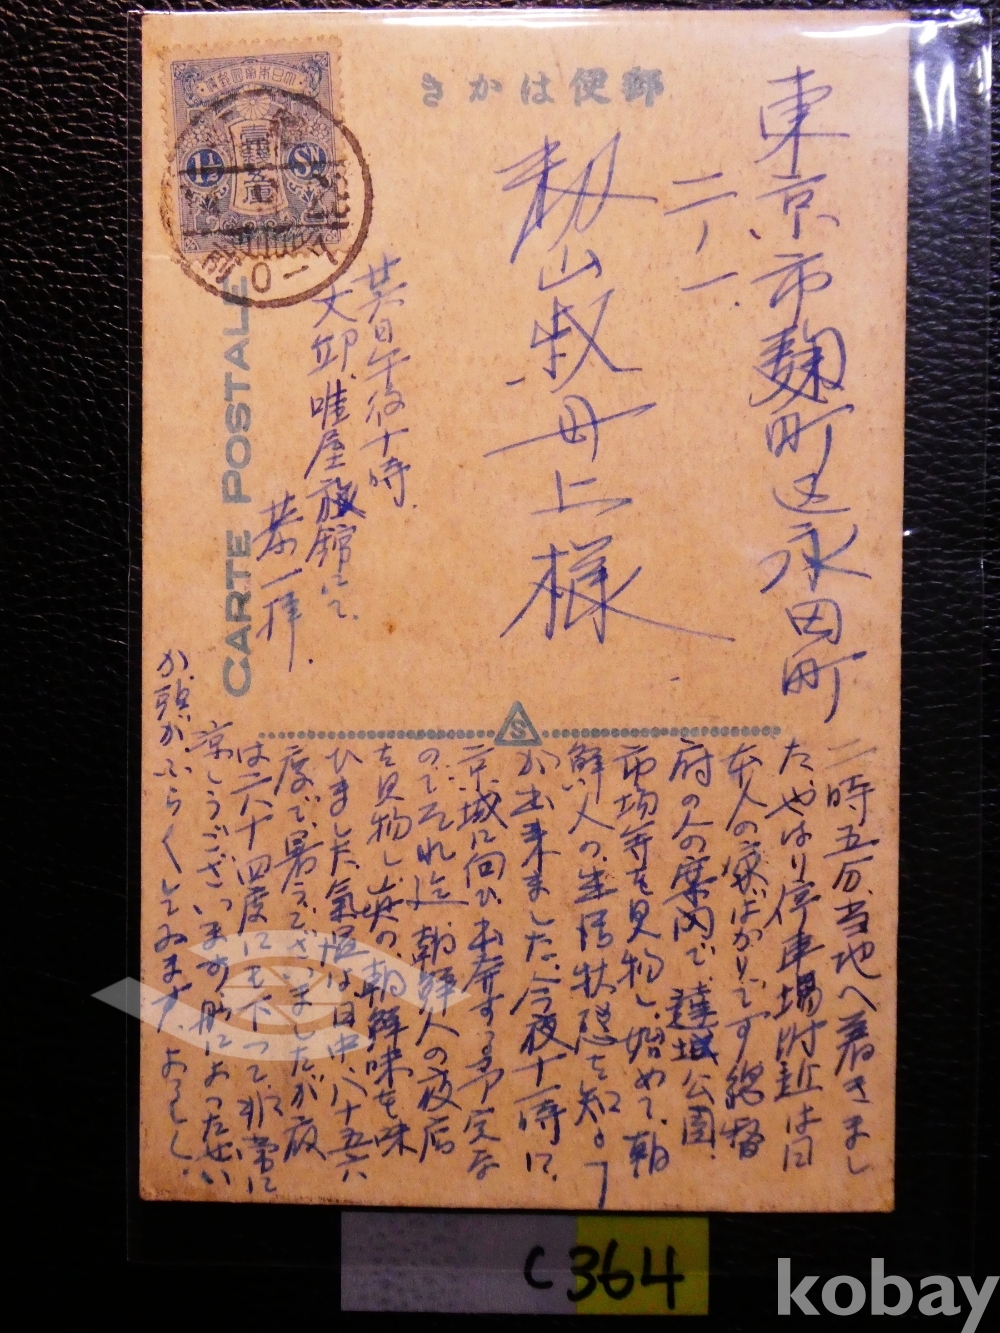 きかはは便郵
大日本帝國郵便
壹錢五厘
1½
Sⁿ
前0-7
CARTE POSTALE
東京市麹町区永田町
二ノ一
叔母上様
廿日午後十時
大邱、唯屋旅館にて、
恭一拝.
S
二時五分、当地へ着きまし
た、やはり停車場附近は日
本人の家ばかりです総督
府の人の案内で、達城公園、
市場等を見物し、始めて、朝
鮮人の生活状態を知る事
が出来ました、今夜十一時に、
京城に向ひ出発する予定な
のでそれ迄、朝鮮人の夜店
を見物し、真の、朝鮮味を味
ひました、氣温は日中、八十五六
度で、暑うございましたが夜
は六十四度にも下って、非常に
涼しうございます船によったせい
か、頭がふらくしてゐます、よろしく
C364
kobay